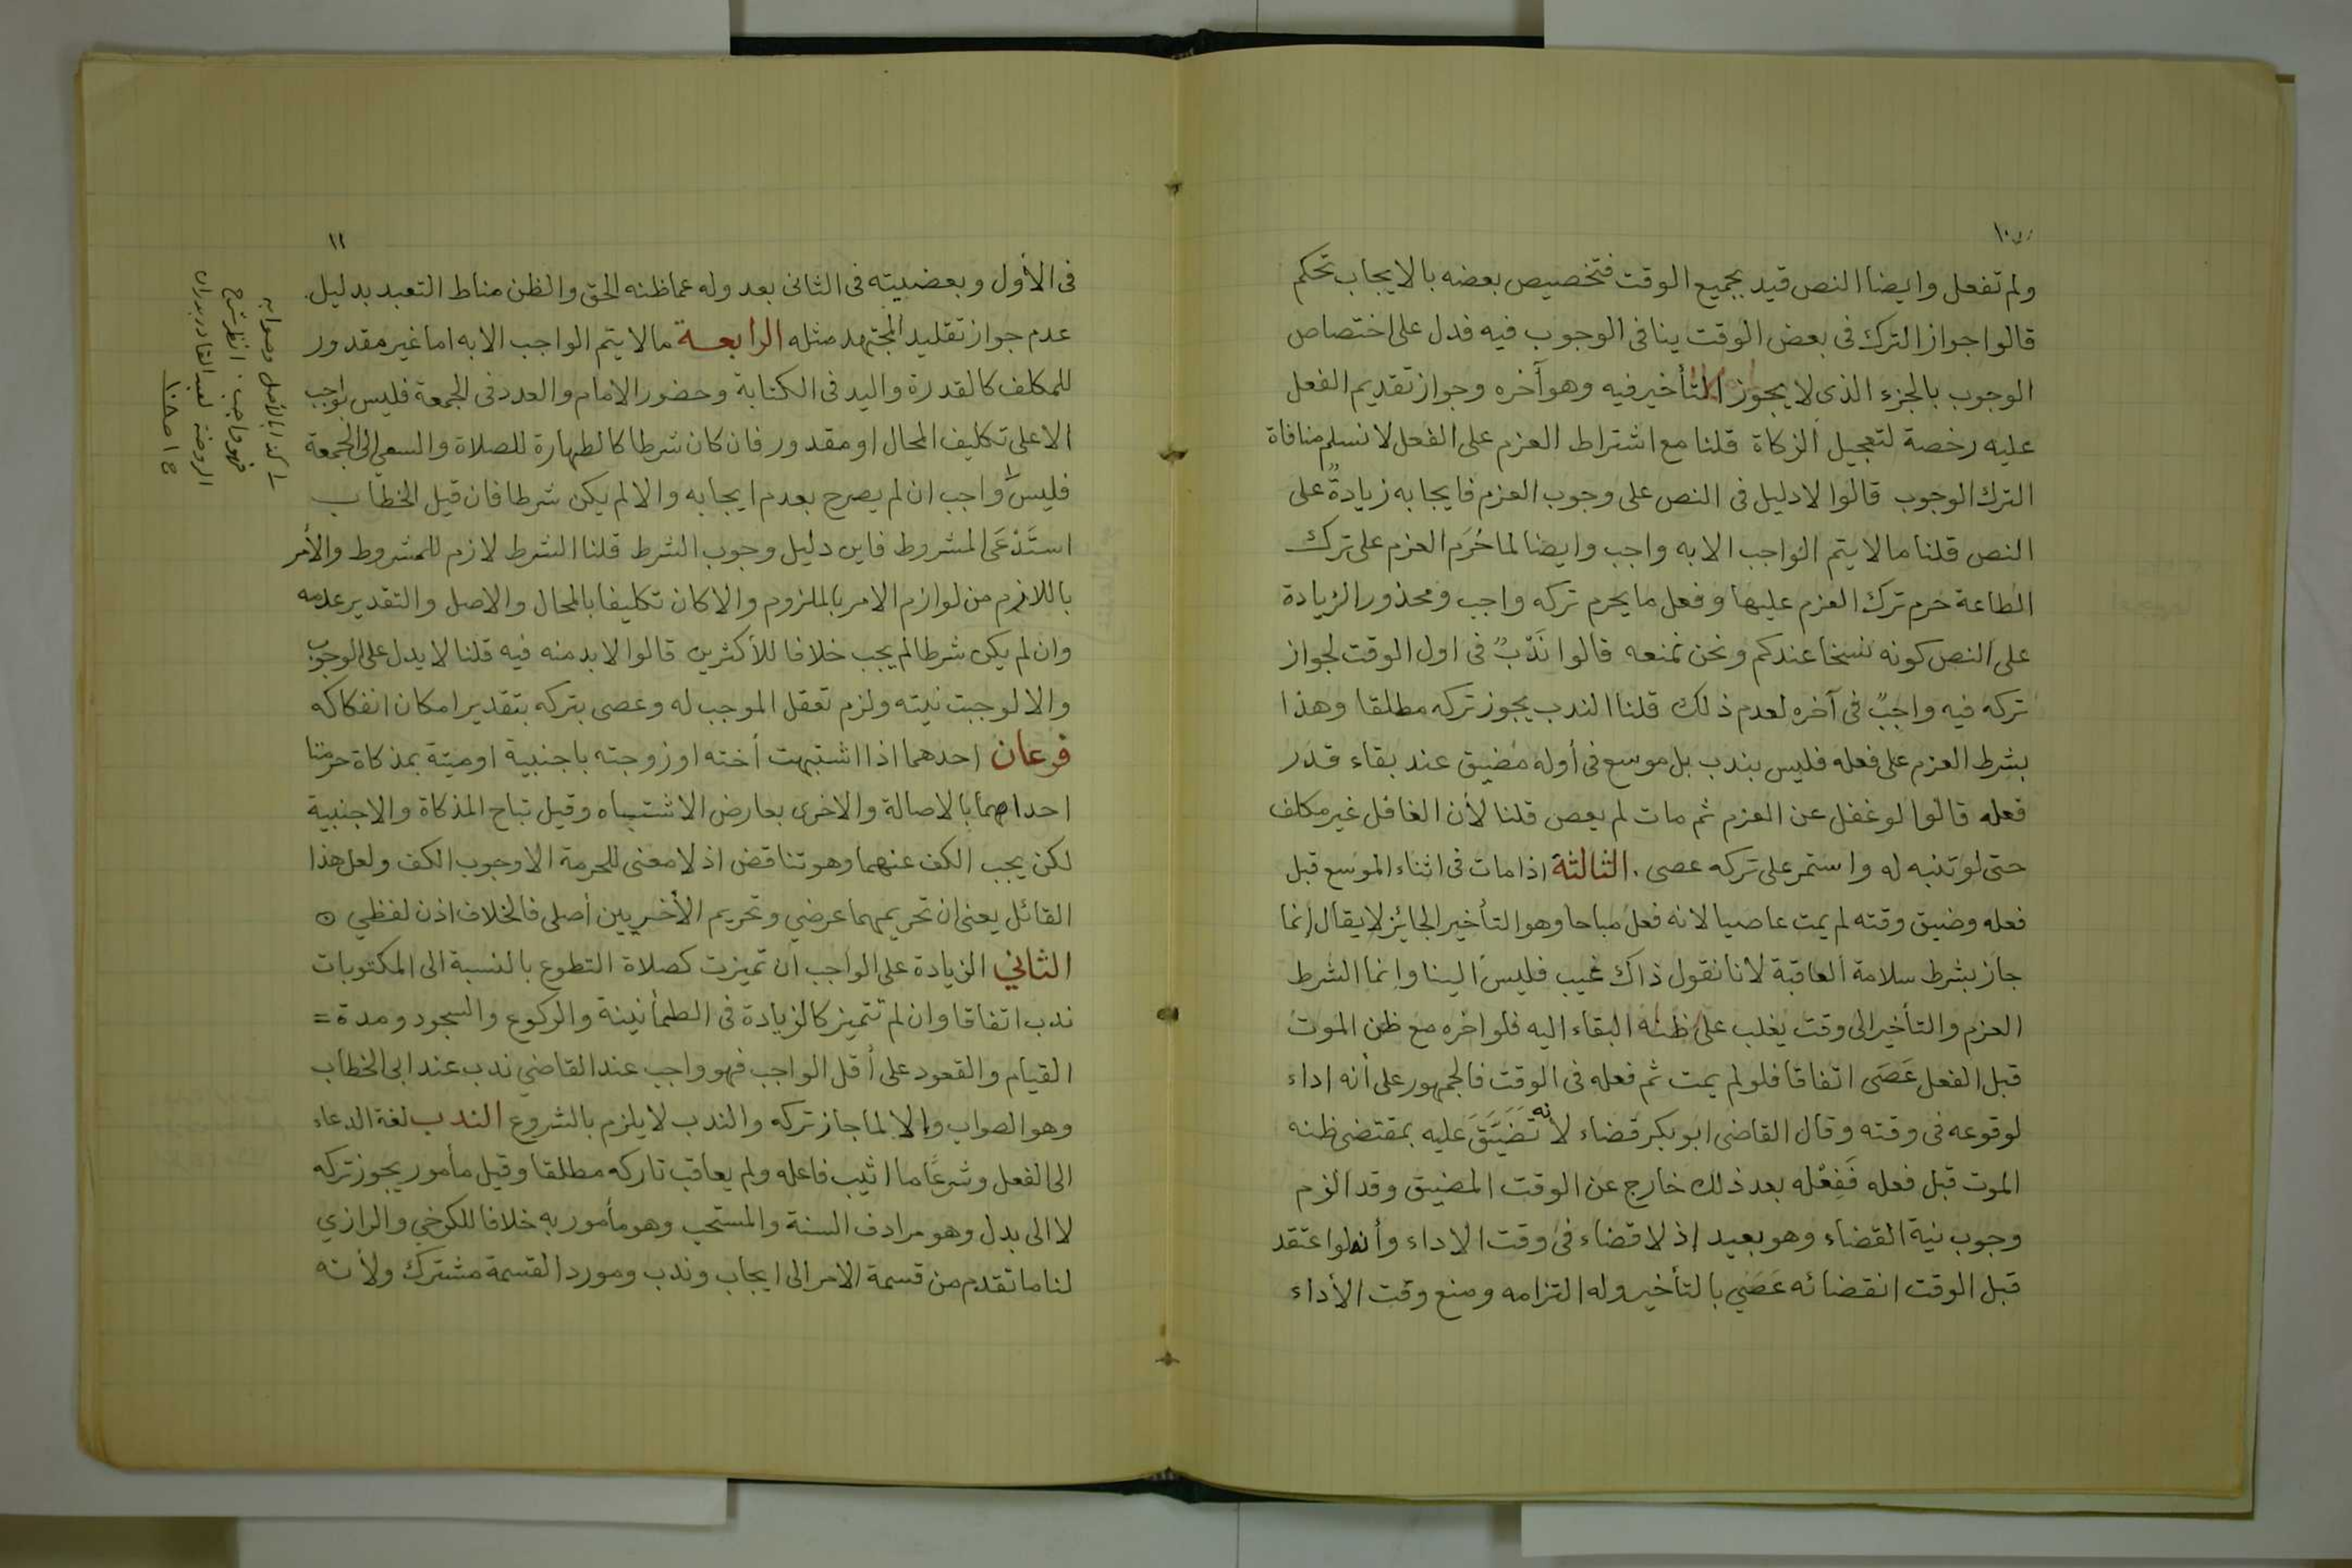 ١٠
ولم تفعل وايضا النص قيد بجميع الوقت فتخصيص بعضه بالايجاب تحكم
قالوا جواز الترك فى بعض الوقت ينافى الوجوب فيه فدل على اختصاص
الوجوب بالجزء الذى لا يجوز التأخير فيه وهو آخره وجواز تقديم الفعل
عليه رخصة لتعجيل الزكاة قلنا مع اشتراط العزم على الفعل لا نسلم منافاة
الترك الوجوب قالوا لا دليل فى النص على وجوب العزم فايجابه زيادةٌ على
النص قلنا ما لا يتم الواجب الا به واجب وايضا لما حُرَم العزم على ترك
الطاعة حرم ترك العزم عليها وفعل ما يحرم تركه واجب ومحذور الزيادة
على النص كونه نسخا عندكم ونحن نمنعه قالوا نَدْبٌ فى اول الوقت لجواز
تركه فيه واجبٌ فى آخره لعدم ذلك قلنا الندب يجوز تركه مطلقا وهذا
بشرط العزم على فعله فليس بندب بل موسع فى أوله مضيق عند بقاء قدر
فعله قالوا لو غفل عن العزم ثم مات لم يعص قلنا لأن الغافل غير مكلف
حتى لو تنبه له واستمر على تركه عصى . الثالثة اذا مات فى اثناء الموسع قبل
فعله وضيق وقته لم يمت عاصيا لانه فعل مباحا وهو التأخير الجائز لا يقال إنما
جاز بشرط سلامة العاقبة لانا نقول ذاك غيب فليس الينا وانما الشرط
العزم والتأخير الى وقت يغلب على ظنه البقاء اليه فلو اخره مع ظن الموت
قبل الفعل عَصَى اتفاقا فلو لم يمت ثم فعله فى الوقت فالجمهور على أنه اداء
لوقوعه فى وقته وقال القاضى ابو بكر قضاء لأنه تَضَيَّقَ عليه بمقتضى ظنه
الموت قبل فعله فَفِعْله بعد ذلك خارج عن الوقت المضيق وقد الزم
وجوب نية القضاء وهو بعيد إذ لا قضاء فى وقت الاداء وأنه لو اعتقد
قبل الوقت انقضائه عَصَي بالتأخير وله التزامه ومنع وقت الأداء
١١
فى الأول وبعضيته فى الثانى بعد وله عما ظنه الحق والظن مناط التعبد بدليل
عدم جواز تقليد المجتهد مثله الرابعة ما لا يتم الواجب الا به اما غير مقدور
للمكلف كالقدرة واليد فى الكتابة وحضور الامام والعدد فى الجمعة فليس بواجب
الا على تكليف المحال او مقدور فان كان شرطا كالطهارة للصلاة والسعي الى الجمعة
فليس١ واجب ان لم يصرح بعدم ايجابه والا لم يكن شرطا فان قيل الخطاب
استَدْعَى المشروط فاين دليل وجوب الشرط قلنا الشرط لازم للمشروط والأمر
باللازم من لوازم الامر بالملزوم والا كان تكليفا بالمحال والاصل والتقدير عدمه
وان لم يكن شرطا لم يجب خلافا للأكثرين قالوا لا بد منه فيه قلنا لا يدل على الوجوب
والا لوجبت نيته ولزم تعقل الموجب له وعصى بتركه بتقدير امكان انفكاكه
فرعان احدهما اذا اشتبهت أخته او زوجته باجنبية او ميتة بمذكاة حرمتا
احداهما بالاصالة والاخرى بعارض الاشتباه وقيل تباح المذكاة والاجنبية
لكن يجب الكف عنهما وهو تناقض اذ لا معنى للحرمة الا وجوب الكف ولعل هذا
القائل يعنى ان تحريمهما عرضي وتحريم الأخريين أصلى فالخلاف اذن لفظي
الثاني الزيادة على الواجب ان تميزت كصلاة التطوع بالنسبة الى المكتوبات
ندب اتفاقا وان لم تتميز كالزيادة فى الطمأنينة والركوع والسجود ومدة =
القيام والقعود على أقل الواجب فهو واجب عند القاضي ندب عند ابى الخطاب
وهو الصواب وإلا لما جاز تركه والندب لا يلزم بالشروع الندب لغة الدعاء
الى الفعل وشرعًا ما اثيب فاعله ولم يعاقب تاركه مطلقا وقيل مأمور يجوز تركه
لا الى بدل وهو مرادف السنة والمستحب وهو مأمور به خلافا للكرخي والرازي
لنا ما تقدم من قسمة الامر الى ايجاب وندب ومورد القسمة مشترك ولأنه
١ كذا بالأصل وصوابه
فهو واجب . انظر شرح
الروضة لعبد القادر بدران